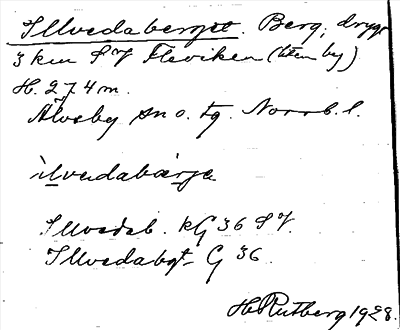 Illvedaberget. Berg, drygt
3 km SV Fleviken (liten by)
H. 274 m.
Älvsby sn o. tg. Norrb. l.
ìlvedabærje
Illvedab. kG 36 SV.
Illvedabgt G 36.
H Rutberg 1928.